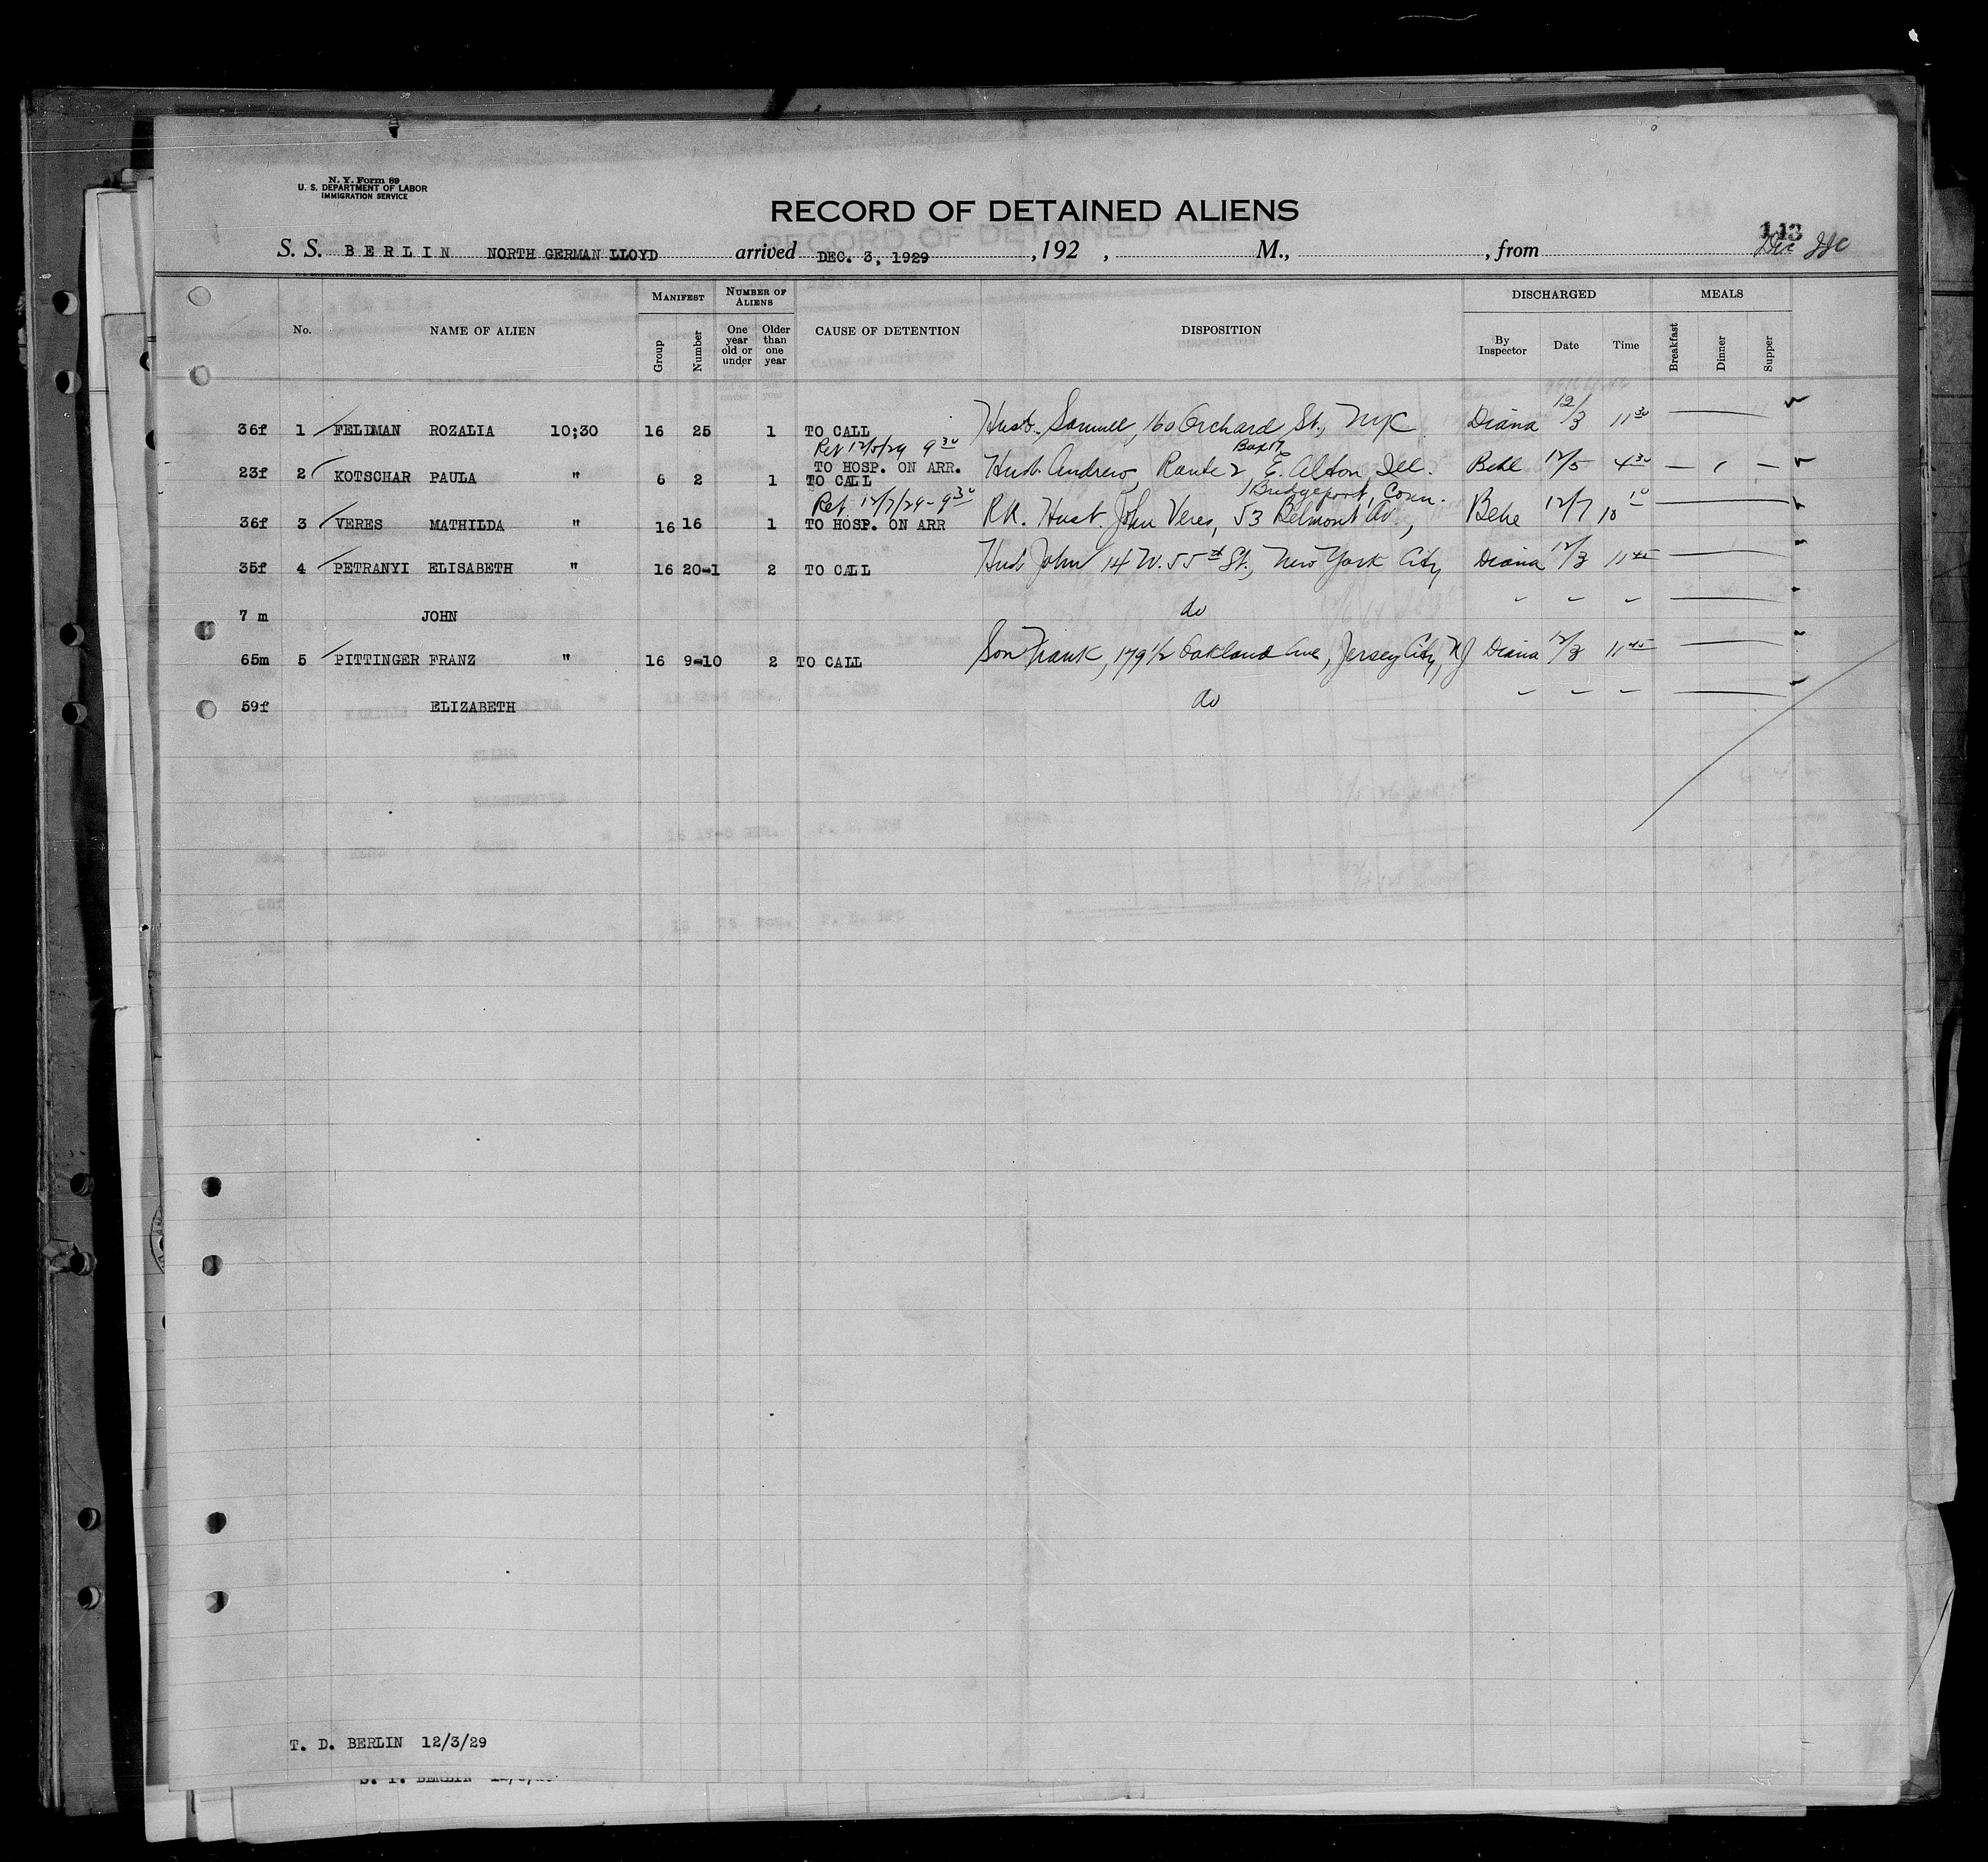 N. Y. Form 89
U. S. DEPARTMENT OF LABOR
IMMIGRATION SERVICE
RECORD OF DETAINED ALIENS
143
S. S. BERLIN NORTH GERMAN LLOYD arrived DEC. 3, 1929, 192 , M., , from
No. NAME OF ALIEN MANIFEST NUMBER OF ALIENS CAUSE OF DETENTION DISPOSITION DISCHARGED MEALS
Group Number One year old or under Older than one year By Inspector Date Time Breakfast Dinner Supper
36f 1 FELDMAN ROZALIA 10;30 16 25 1 TO CALL Husb. Samuel, 160 Orchard St., NYC Diana 12/3 11 30
Ret 12/5/29 9 30 Box 17
TO HOSP. ON ARR.
23f 2 KOTSCHAR PAULA " 6 2 1 TO CALL Husb. Andrew, Route 2 E. Alton, Ill. Behe 12/5 4 30
Ret. 12/7/29 - 9 30 Bridgeport, Conn.
36f 3 VERES MATHILDA " 16 16 1 TO HOSP. ON ARR RR. Husb. John Veres, 53 Belmont Av., Behe 12/7 10 10
35f 4 PETRANYI ELISABETH " 16 20-1 2 TO CALL Husb John 14 W. 55th St., New York City Diana 12/3 11 45
7 m JOHN do " " "
65m 5 PITTINGER FRANZ " 16 9-10 2 TO CALL Son Frank, 179 1/2 Oakland Ave, Jersey City, NJ Diana 12/3 11 45
59f ELIZABETH do " " "
T. D. BERLIN 12/3/29